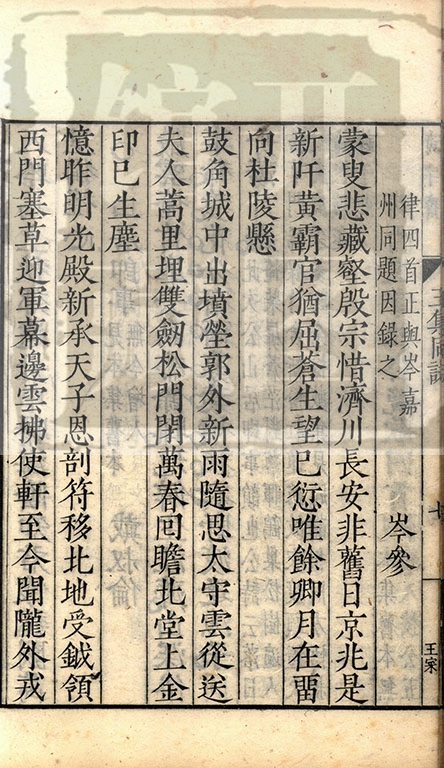 律四首正與岑嘉
州同題因録之
岑參
蒙叟悲藏壑殷宗惜濟川長安非舊日京兆是
新阡黄霸官猶屈蒼生望已愆唯餘卿月在畱
向杜陵懸
鼓角城中出墳塋郭外新雨隨思太守雲從送
夫人蒿里埋雙劒松門閉萬春回瞻北堂上金
印巳生塵
憶昨明光殿新承天子恩剖符移北地受鉞領
西門塞草迎軍幕邊雲拂使軒至今聞隴外戎
王宷